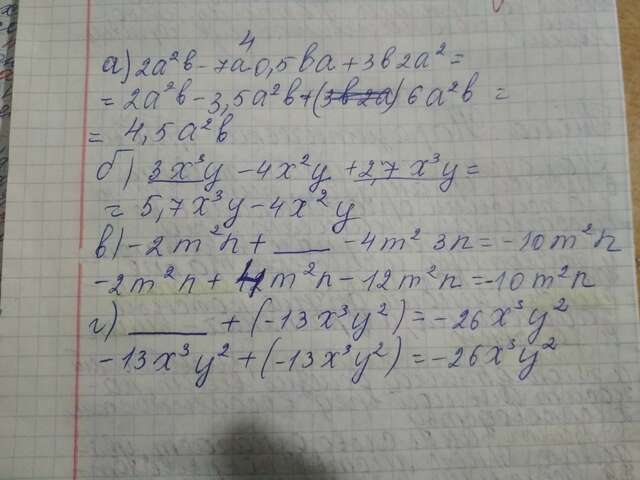 4
а) 2a²b - 7a·0,5ba + 3b2a² =
= 2a²b - 3,5a²b + (3b2a) 6a²b =
= 4,5a²b
б) 3x³y - 4x²y + 2,7x³y =
= 5,7x³y - 4x²y
в) -2m²n + ___ - 4m² 3n = -10m²n
-2m²n + 4m²n - 12m²n = -10m²n
г) ______ + (-13x³y²) = -26x³y²
-13x³y² + (-13x³y²) = -26x³y²